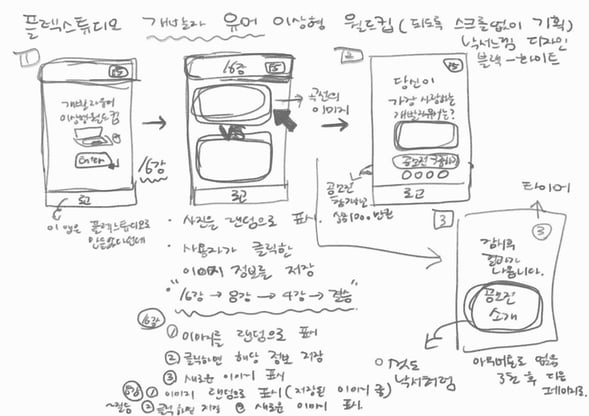 플렉스튜디오 개발자 유머 이상형 월드컵 (되도록 스크롤없이 기획)
낙서느낌 디자인
블랙-화이트
1
개발자유머
이상형월드컵
Enter
로고
이 앱은 플렉스튜디오로
만들었다던데
16강
16강
VS
로고
곡선의
이미지
2
당신이
가장 사랑하는
개발자유머는?
공모전
로고
공모전
상금 1000만원
3
타이머
3
잠시후
결과가
나옵니다.
공모전
소개
이것도
낙서처럼
아무버튼도 없음
3초 후 다음
페이지로.
· 사진을 랜덤으로 표시.
· 사용자가 클릭한
이미지 정보를 저장
"16강 → 8강 → 4강 → 결승"
16강
① 이미지를 랜덤으로 표시
② 클릭하면 해당 정보 저장
③ 새로운 이미지 표시
8강
~결승
① 이미지 랜덤으로 표시 (저장된 이미지 중)
② 클릭하면 저장 ③ 새로운 이미지 표시.